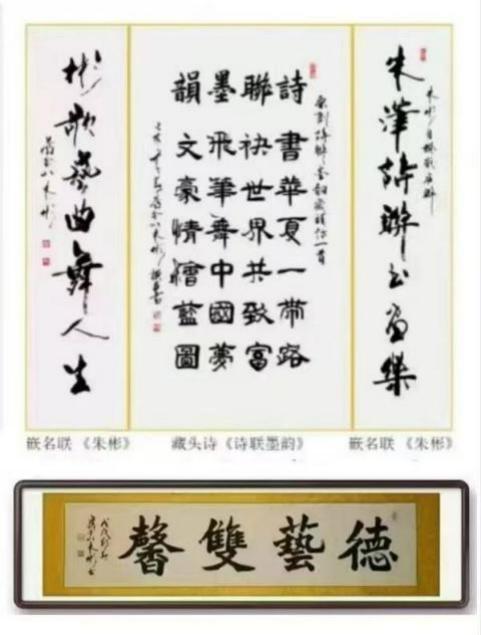 朱澤詩聯书画樂
詩書華夏一帶路
聯袂世界共致富
墨飛筆舞中國夢
韻文豪情繪藍圖
彬歌藝曲舞人生
嵌名联 《朱彬》
藏头诗《诗联墨韵》
嵌名联 《朱彬》
德藝雙馨